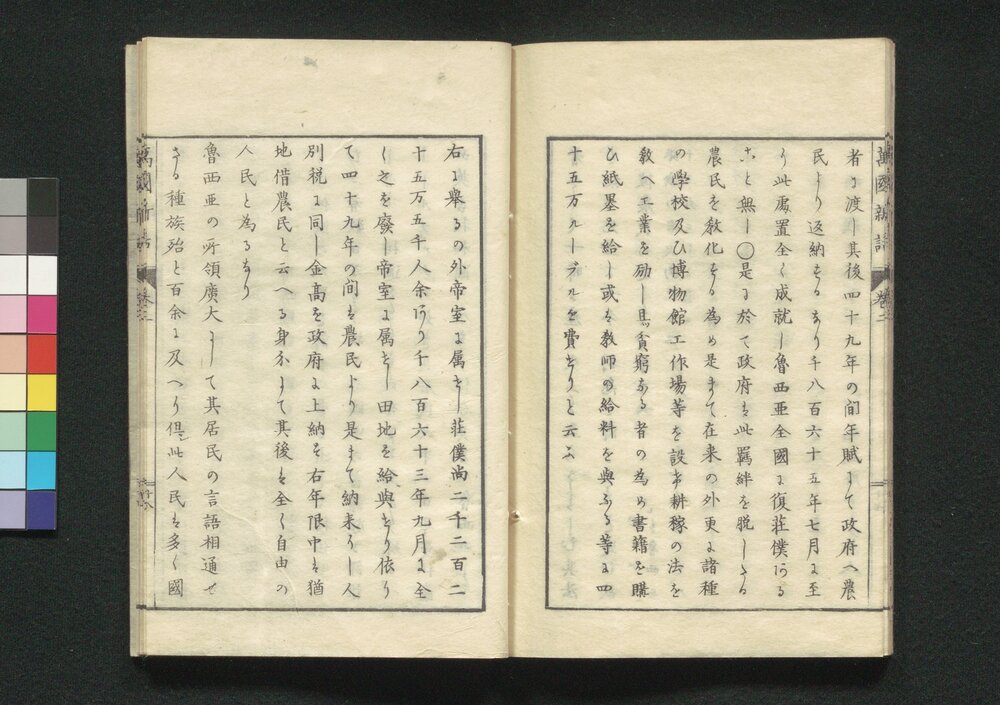 萬國新話 卷二
者ニ渡シ其後四十九年の間年賦ニて政府へ農
民より返納する𛂂り千八百六十五年七月ニ至
り此處置全く成就し魯西亜全國ニ復荘僕ある
こと無し〇是ニ於て政府ハ此羈絆を脱したる
農民を教化する為め是まて在来の外更ニ諸種
の學校及ひ博物館工作場等を設け耕稼の法を
教へ工業を励し且貧窮なる者の為め書籍を購
ひ紙墨を給し或ハ教師の給料を與ふる等ニ四
十五万ルーブルを費せりと云ふ
右ニ舉るの外帝室ニ属せし荘僕尚二千二百二
十五万五千人余あり千八百六十三年九月ニ全
く之を廢し帝室ニ属せし田地を給與せり依り
て四十九年の間ハ農民より是まて納来りし人
別税ニ同し金高を政府ニ上納す右年限中ハ猶
地借農民と云へる身分ニて其後ハ全く自由の
人民と為るなり
魯西亜の所領廣大ニして其居民の言語相通せ
さる種族殆と百余ニ及へり但此人民ハ多く國
萬國新話 卷二